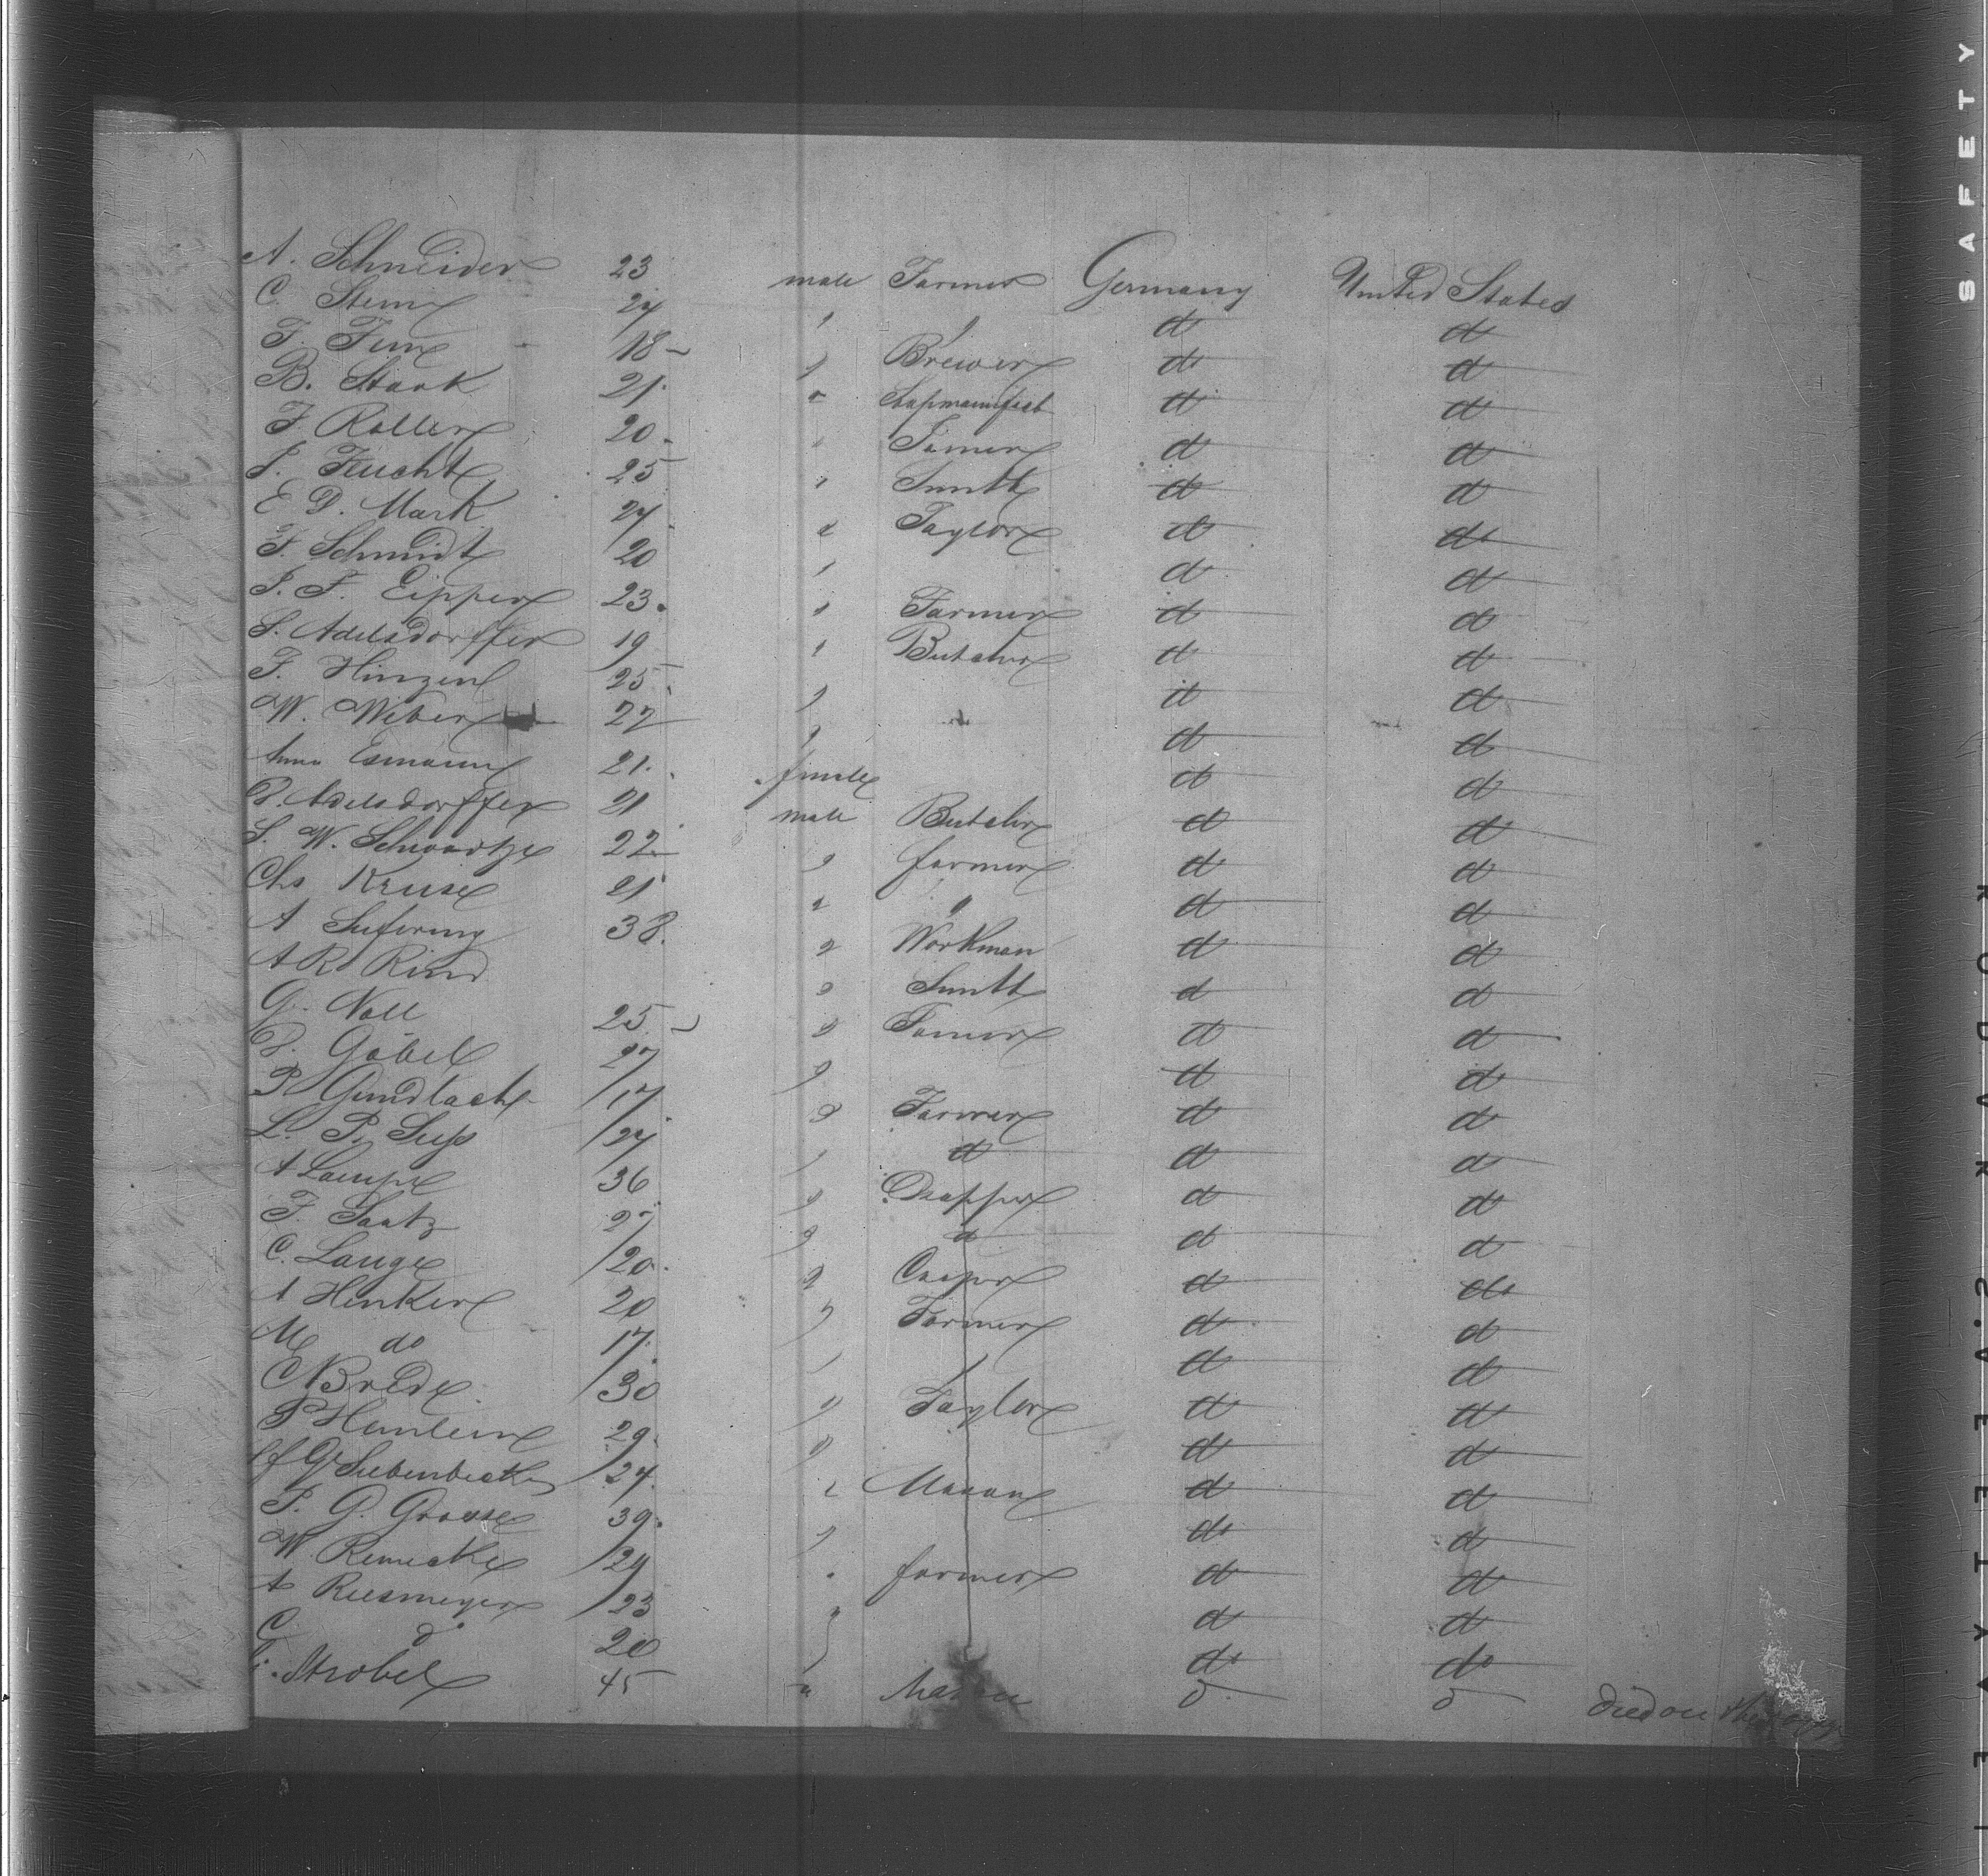 A. Schneider 23 male Farmer Germany United States
C. Stein 24 " " do do
F. Fim 18 " Brewer do do
B. Stark 21 " do do
F. Roller 20 " Farmer do do
J. Feucht 25 " Smith do do
E D. Mark 24 " Taylor do do
F. Schmidt 20 " do do
J. F. Eipper 23 " Farmer do do
S. Adelsdorffer 19 " Butcher do do
F. Hinzen 25 " do do
W. Weber 27 " do do
Anna Esmann 21 female do do
B. Adelsdorffer 21 male Butcher do do
S. W. Schwartze 22 " farmer do do
Chs Kruse 21 " " do do
A 38 " Workman do do
A R Rind " Smith do do
G. Noll 25 " Farmer do do
B. Göbel 27 " do do
P. Gundlach 17 " Farmer do do
L. P. 24 " do do do
A Lampe 36 " Drapper do do
F. Saatz 27 " do do do
C. Lange 20 " Cooper do do
A Henker 20 " Farmer do do
M do 17 " " do do
C Brede 30 " Taylor do do
P Henlein 29 " do do
G Siebenbeck 24 " Mason do do
J. G. Grosse 39 " do do
W. Reinecke 24 " farmer do do
A Riesmeyer 23 " do do
C do 20 " do do
Strobel 45 " Mason do do died on the